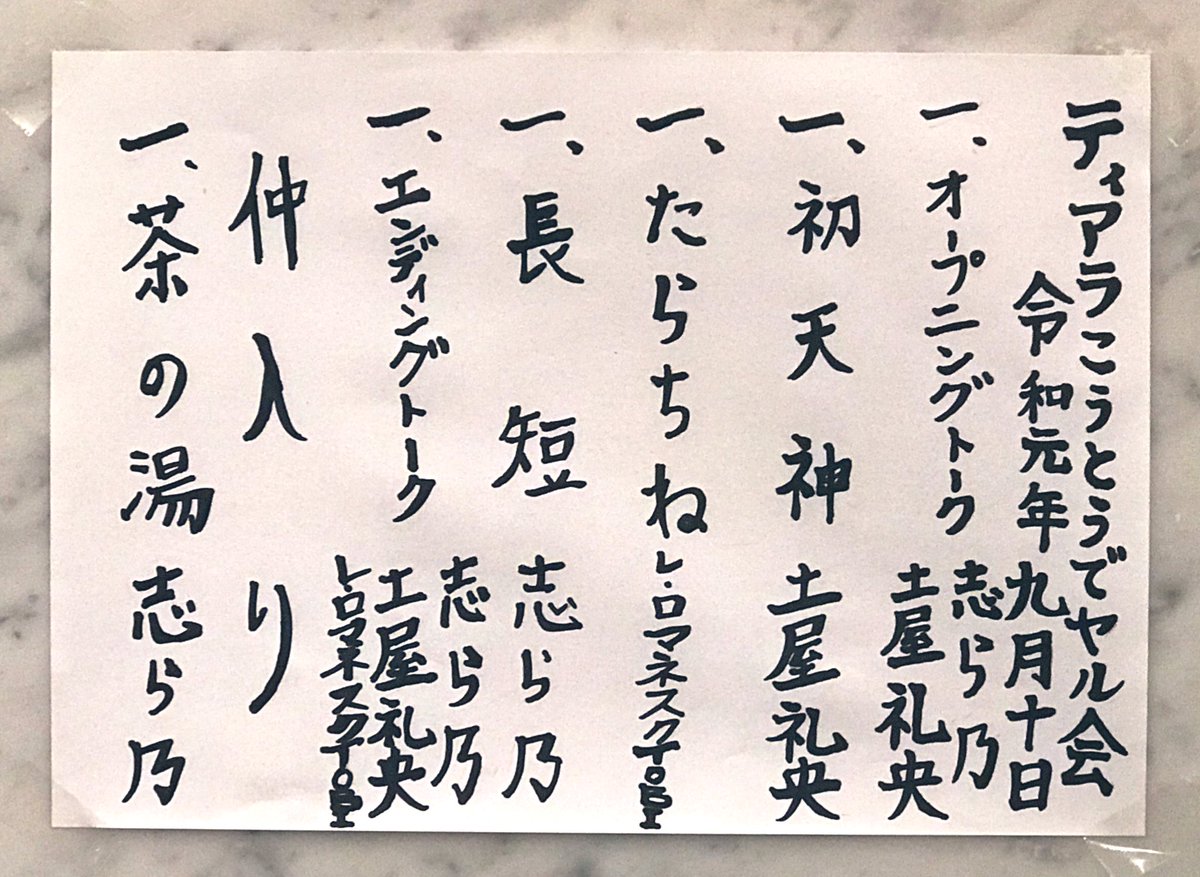 ティアラこうとうでヤル会
令和元年九月十日
一、オープニングトーク
志ら乃
土屋礼央
一、初天神 土屋礼央
一、たらちね レ・ロマネスクTOBI
一、長短 志ら乃
一、エンディングトーク
志ら乃
土屋礼央
レ・ロマネスクTOBI
仲入り
一、茶の湯 志ら乃